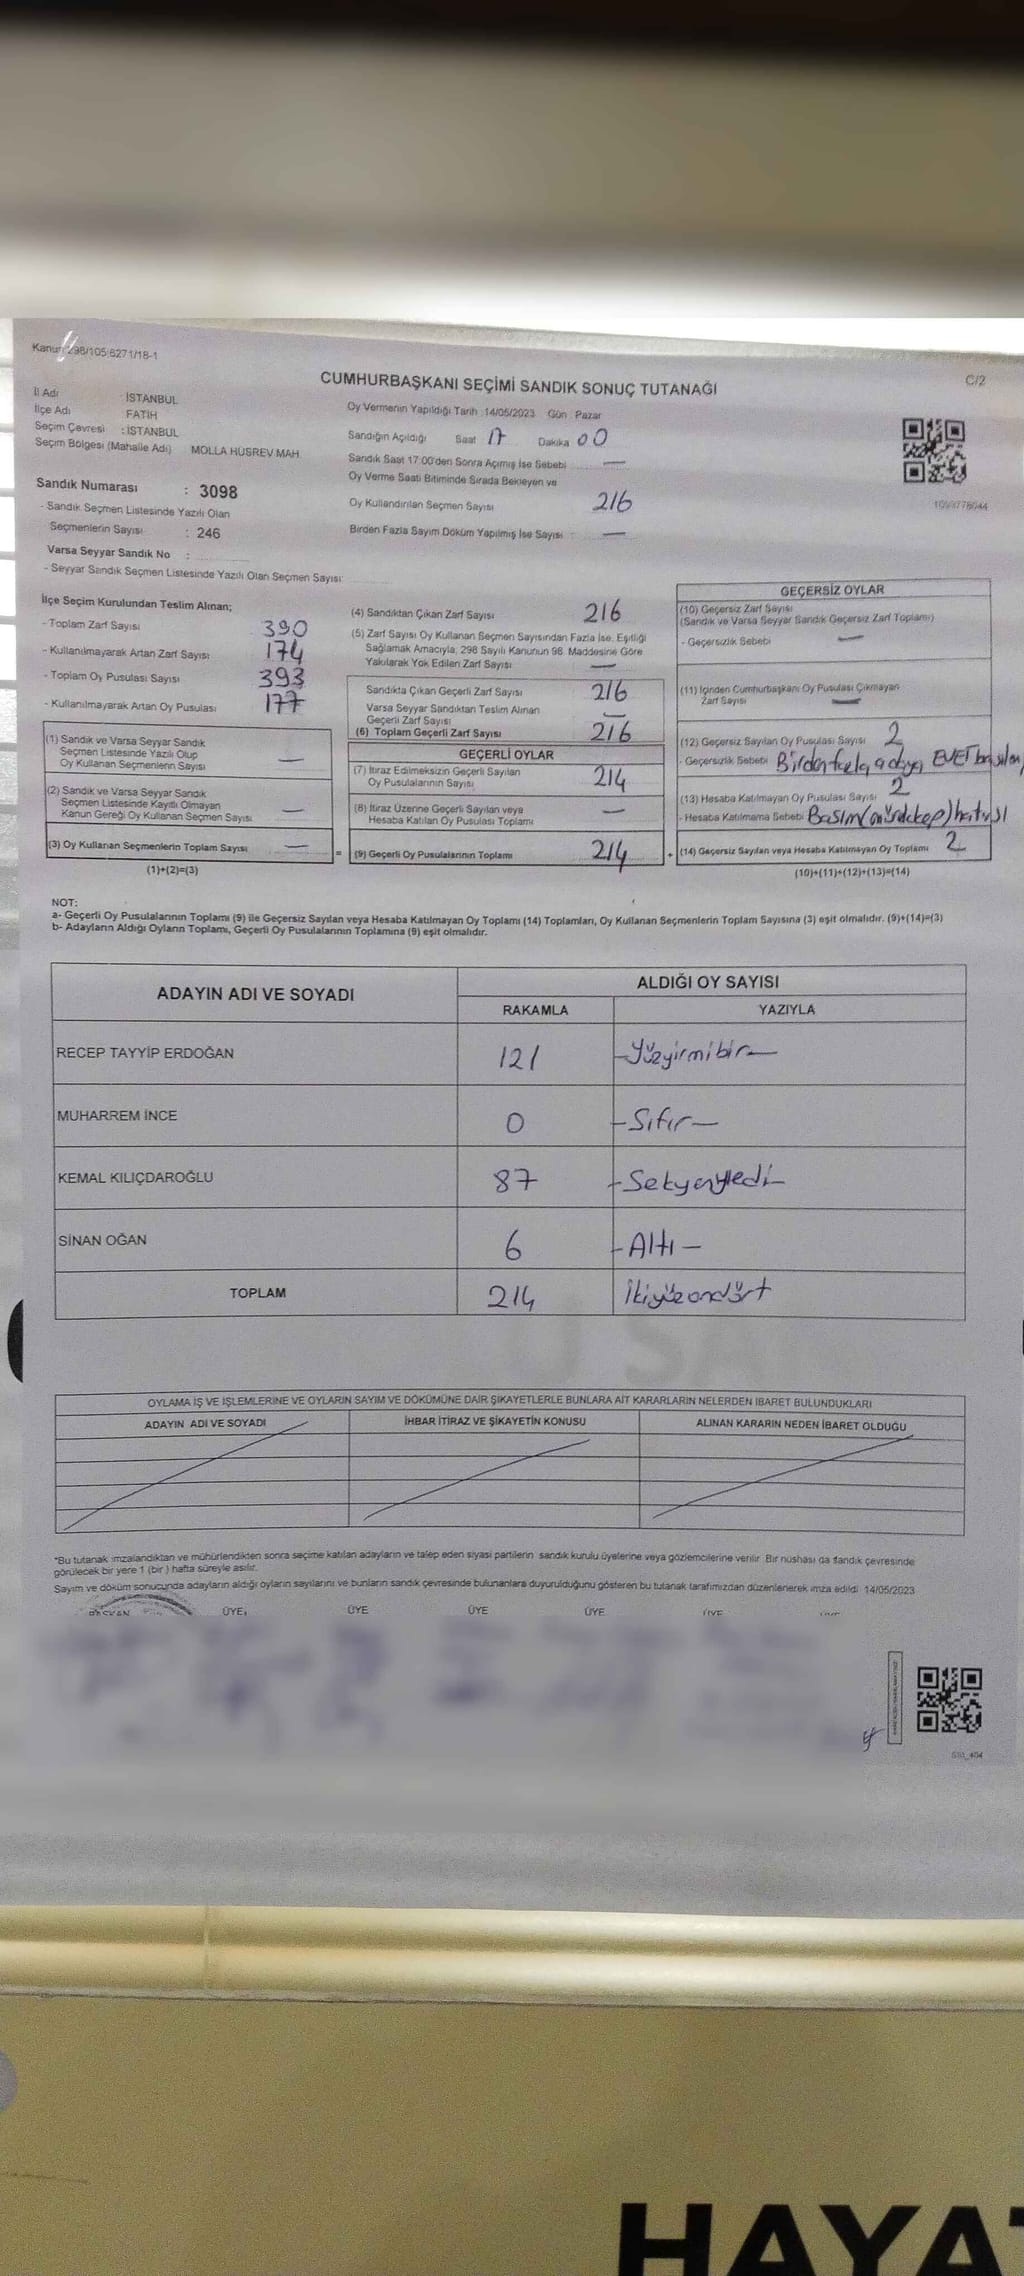 Kanun 298/105 6271/18-1
C/2
CUMHURBAŞKANI SEÇİMİ SANDIK SONUÇ TUTANAĞI
İl Adı : İSTANBUL
İlçe Adı : FATİH
Seçim Çevresi : İSTANBUL
Seçim Bölgesi (Mahalle Adı) MOLLA HÜSREV MAH.
Oy Vermenin Yapıldığı Tarih :14/05/2023 Gün : Pazar
Sandığın Açıldığı Saat 17 Dakika 00
Sandık Saat 17:00'den Sonra Açılmış İse Sebebi —
Oy Verme Saati Bitiminde Sırada Bekleyen ve
Oy Kullandırılan Seçmen Sayısı 216
Birden Fazla Sayım Döküm Yapılmış İse Sayısı : —
Sandık Numarası : 3098
- Sandık Seçmen Listesinde Yazılı Olan
Seçmenlerin Sayısı : 246
Varsa Seyyar Sandık No :
- Seyyar Sandık Seçmen Listesinde Yazılı Olan Seçmen Sayısı:
İlçe Seçim Kurulundan Teslim Alınan;
- Toplam Zarf Sayısı 390
- Kullanılmayarak Artan Zarf Sayısı 174
- Toplam Oy Pusulası Sayısı 393
- Kullanılmayarak Artan Oy Pusulası 177
(1) Sandık ve Varsa Seyyar Sandık
Seçmen Listesinde Yazılı Olup
Oy Kullanan Seçmenlerin Sayısı —
(2) Sandık ve Varsa Seyyar Sandık
Seçmen Listesinde Kayıtlı Olmayan
Kanun Gereği Oy Kullanan Seçmen Sayısı —
(3) Oy Kullanan Seçmenlerin Toplam Sayısı —
(1)+(2)=(3)
(4) Sandıktan Çıkan Zarf Sayısı 216
(5) Zarf Sayısı Oy Kullanan Seçmen Sayısından Fazla İse, Eşitliği
Sağlamak Amacıyla; 298 Sayılı Kanunun 98. Maddesine Göre
Yakılarak Yok Edilen Zarf Sayısı —
Sandıkta Çıkan Geçerli Zarf Sayısı 216
Varsa Seyyar Sandıktan Teslim Alınan
Geçerli Zarf Sayısı —
(6) Toplam Geçerli Zarf Sayısı 216
GEÇERLİ OYLAR
(7) İtiraz Edilmeksizin Geçerli Sayılan
Oy Pusulalarının Sayısı 214
(8) İtiraz Üzerine Geçerli Sayılan veya
Hesaba Katılan Oy Pusulası Toplamı —
= (9) Geçerli Oy Pusulalarının Toplamı 214
GEÇERSİZ OYLAR
(10) Geçersiz Zarf Sayısı
(Sandık ve Varsa Seyyar Sandık Geçersiz Zarf Toplamı)
- Geçersizlik Sebebi —
(11) İçinden Cumhurbaşkanı Oy Pusulası Çıkmayan
Zarf Sayısı —
(12) Geçersiz Sayılan Oy Pusulası Sayısı 2
- Geçersizlik Sebebi Birden fazla adaya EVET basılan
(13) Hesaba Katılmayan Oy Pusulası Sayısı 2
- Hesaba Katılmama Sebebi Basım (mürekkep) hatası
+ (14) Geçersiz Sayılan veya Hesaba Katılmayan Oy Toplamı 2
(10)+(11)+(12)+(13)=(14)
NOT:
a- Geçerli Oy Pusulalarının Toplamı (9) ile Geçersiz Sayılan veya Hesaba Katılmayan Oy Toplamı (14) Toplamları, Oy Kullanan Seçmenlerin Toplam Sayısına (3) eşit olmalıdır. (9)+(14)=(3)
b- Adayların Aldığı Oyların Toplamı, Geçerli Oy Pusulalarının Toplamına (9) eşit olmalıdır.
ADAYIN ADI VE SOYADI
ALDIĞI OY SAYISI
RAKAMLA YAZIYLA
RECEP TAYYİP ERDOĞAN 121 -Yüzyirmibir-
MUHARREM İNCE 0 -Sıfır-
KEMAL KILIÇDAROĞLU 87 -Seksenyedi-
SİNAN OĞAN 6 -Altı-
TOPLAM 214 İkiyüzondört
OYLAMA İŞ VE İŞLEMLERİNE VE OYLARIN SAYIM VE DÖKÜMÜNE DAİR ŞİKAYETLERLE BUNLARA AİT KARARLARIN NELERDEN İBARET BULUNDUKLARI
ADAYIN ADI VE SOYADI İHBAR İTİRAZ VE ŞİKAYETİN KONUSU ALINAN KARARIN NEDEN İBARET OLDUĞU
*Bu tutanak imzalandıktan ve mühürlendikten sonra seçime katılan adayların ve talep eden siyasi partilerin sandık kurulu üyelerine veya gözlemcilerine verilir. Bir nüshası da sandık çevresinde
görülecek bir yere 1 (bir) hafta süreyle asılır.
Sayım ve döküm sonucunda adayların aldığı oyların sayılarını ve bunların sandık çevresinde bulunanlara duyurulduğunu gösteren bu tutanak tarafımızdan düzenlenerek imza edildi. 14/05/2023
BAŞKAN ÜYE ÜYE ÜYE ÜYE ÜYE
HAYAT